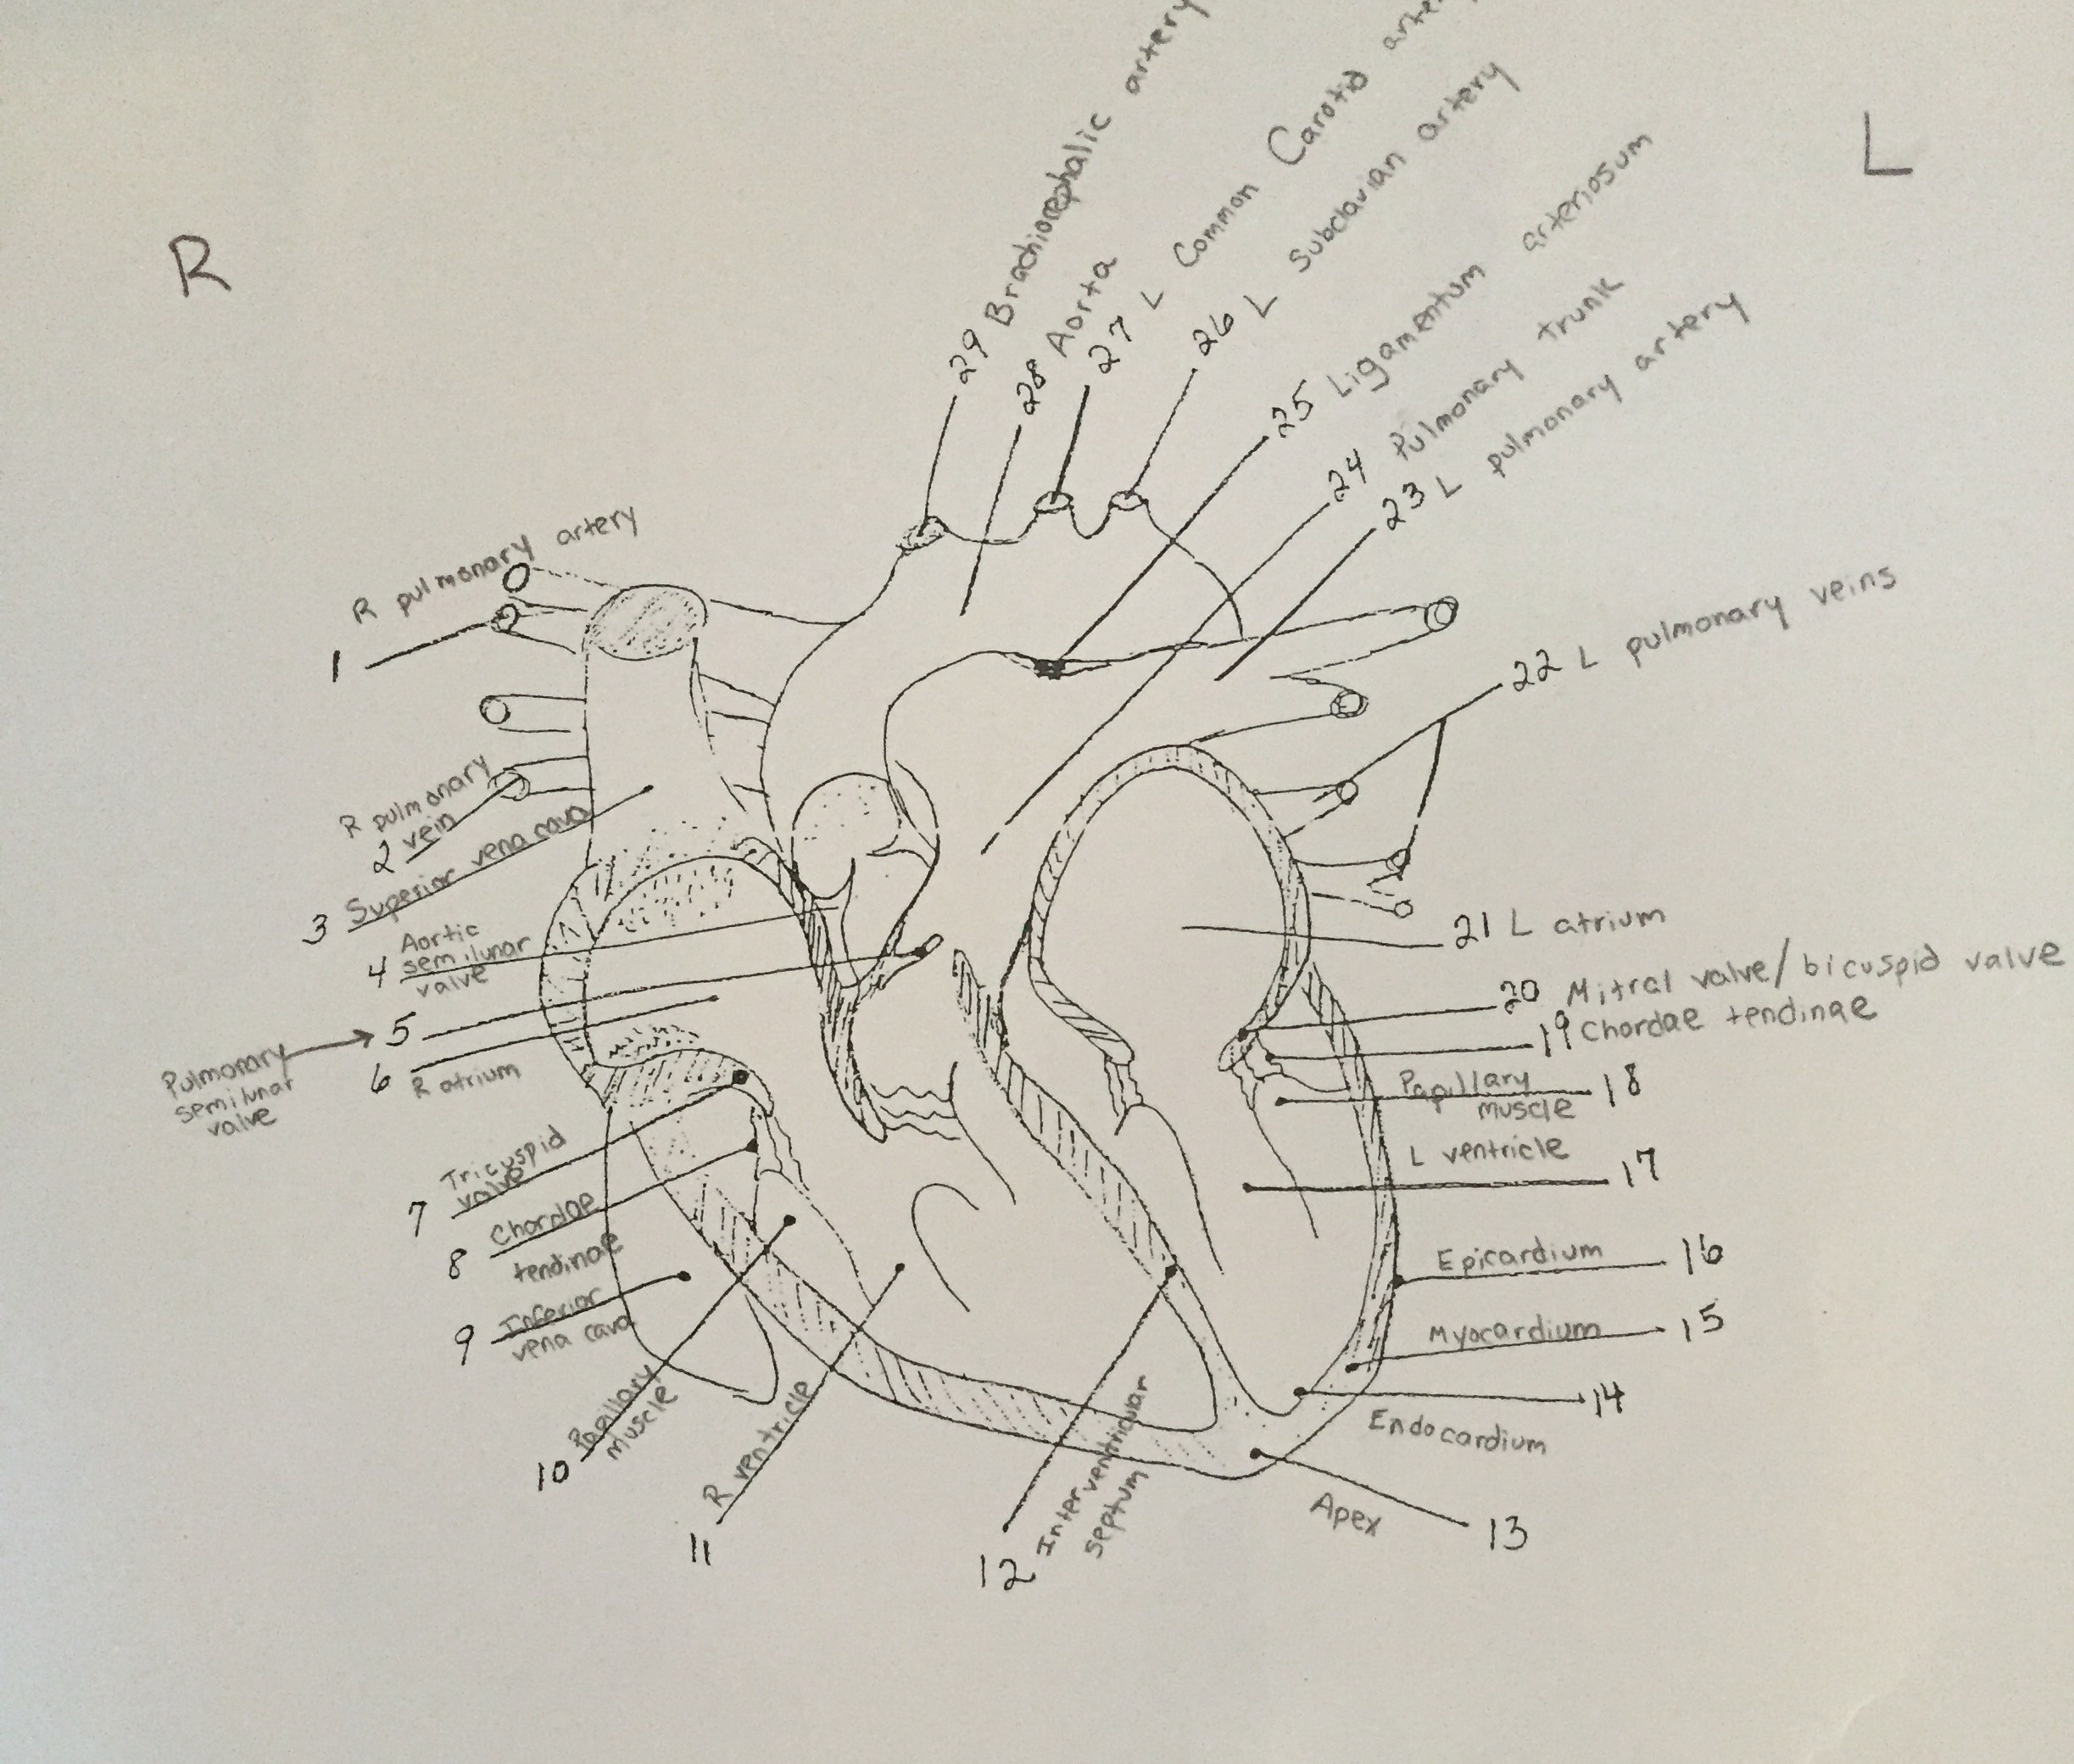 R
L
29 Brachiocephalic artery
28 Aorta
27 L Common Carotid
26 L Subclavian artery
25 Ligamentum arteriosum
24 Pulmonary trunk
23 L pulmonary artery
22 L pulmonary veins
21 L atrium
20 Mitral valve/bicuspid valve
19 Chordae tendinae
Papillary
muscle
18
L ventricle
17
Epicardium 16
Myocardium 15
14
Endocardium
Apex
13
R pulmonary artery
1
R pulmonary
2 vein
3 Superior vena cava
Aortic
4 semilunar
valve
5
Pulmonary
semilunar
valve
6 R atrium
Tricuspid
valve
7
Chordae
8
tendinae
9 Inferior
vena cava
10 Papillary
muscle
R ventricle
11
12 Interventricular
septum